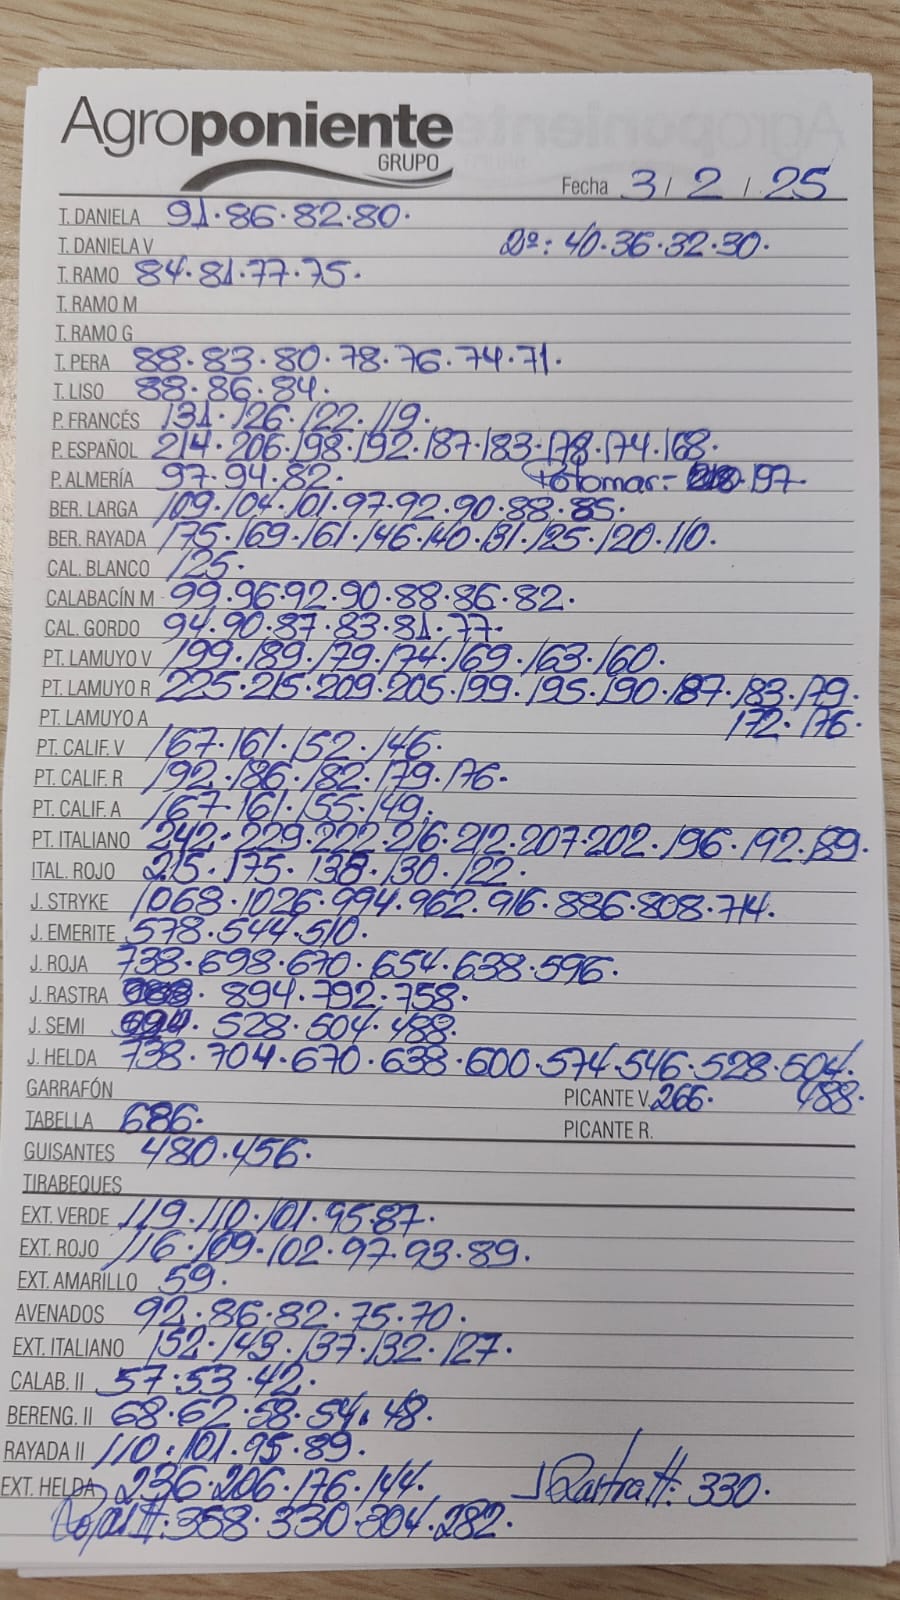 Agroponiente
GRUPO
Fecha 3 / 2 / 25
T. DANIELA 91·86·82·80·
T. DANIELA V 2º: 40·36·32·30·
T. RAMO 84·81·77·75·
T. RAMO M
T. RAMO G
T. PERA 88·83·80·78·76·74·71·
T. LISO 88·86·84·
P. FRANCÉS 131·126·122·119·
P. ESPAÑOL 214·206·198·192·187·183·178·174·168·
P. ALMERÍA 97·94·82· 197·
BER. LARGA 109·104·101·97·92·90·88·85·
BER. RAYADA 175·169·161·146·140·131·125·120·110·
CAL. BLANCO 125·
CALABACÍN M 99·96·92·90·88·86·82·
CAL. GORDO 94·90·87·83·81·77·
PT. LAMUYO V 199·189·179·174·169·163·160·
PT. LAMUYO R 225·215·209·205·199·195·190·187·183·179·
PT. LAMUYO A 172·176·
PT. CALIF. V 167·161·152·146·
PT. CALIF. R 192·186·182·179·176·
PT. CALIF. A 167·161·155·149·
PT. ITALIANO 242·229·222·216·212·207·202·196·192·189·
ITAL. ROJO 215·175·138·130·122·
J. STRYKE 1068·1026·994·962·916·886·808·714·
J. EMERITE 578·544·510·
J. ROJA 738·698·670·654·638·596·
J. RASTRA 894·792·758·
J. SEMI 528·504·488·
J. HELDA 738·704·670·638·600·574·546·528·504·
GARRAFÓN PICANTE V. 266· 488·
TABELLA 686· PICANTE R.
GUISANTES 480·456·
TIRABEQUES
EXT. VERDE 119·110·101·95·87·
EXT. ROJO 116·109·102·97·93·89·
EXT. AMARILLO 59·
AVENADOS 92·86·82·75·70·
EXT. ITALIANO 152·143·137·132·127·
CALAB. II 57·53·42·
BERENG. II 68·62·58·54·48·
RAYADA II 110·101·95·89·
EXT. HELDA 236·206·176·144· J Rastra II: 330·
Roja II: 358·330·304·282·